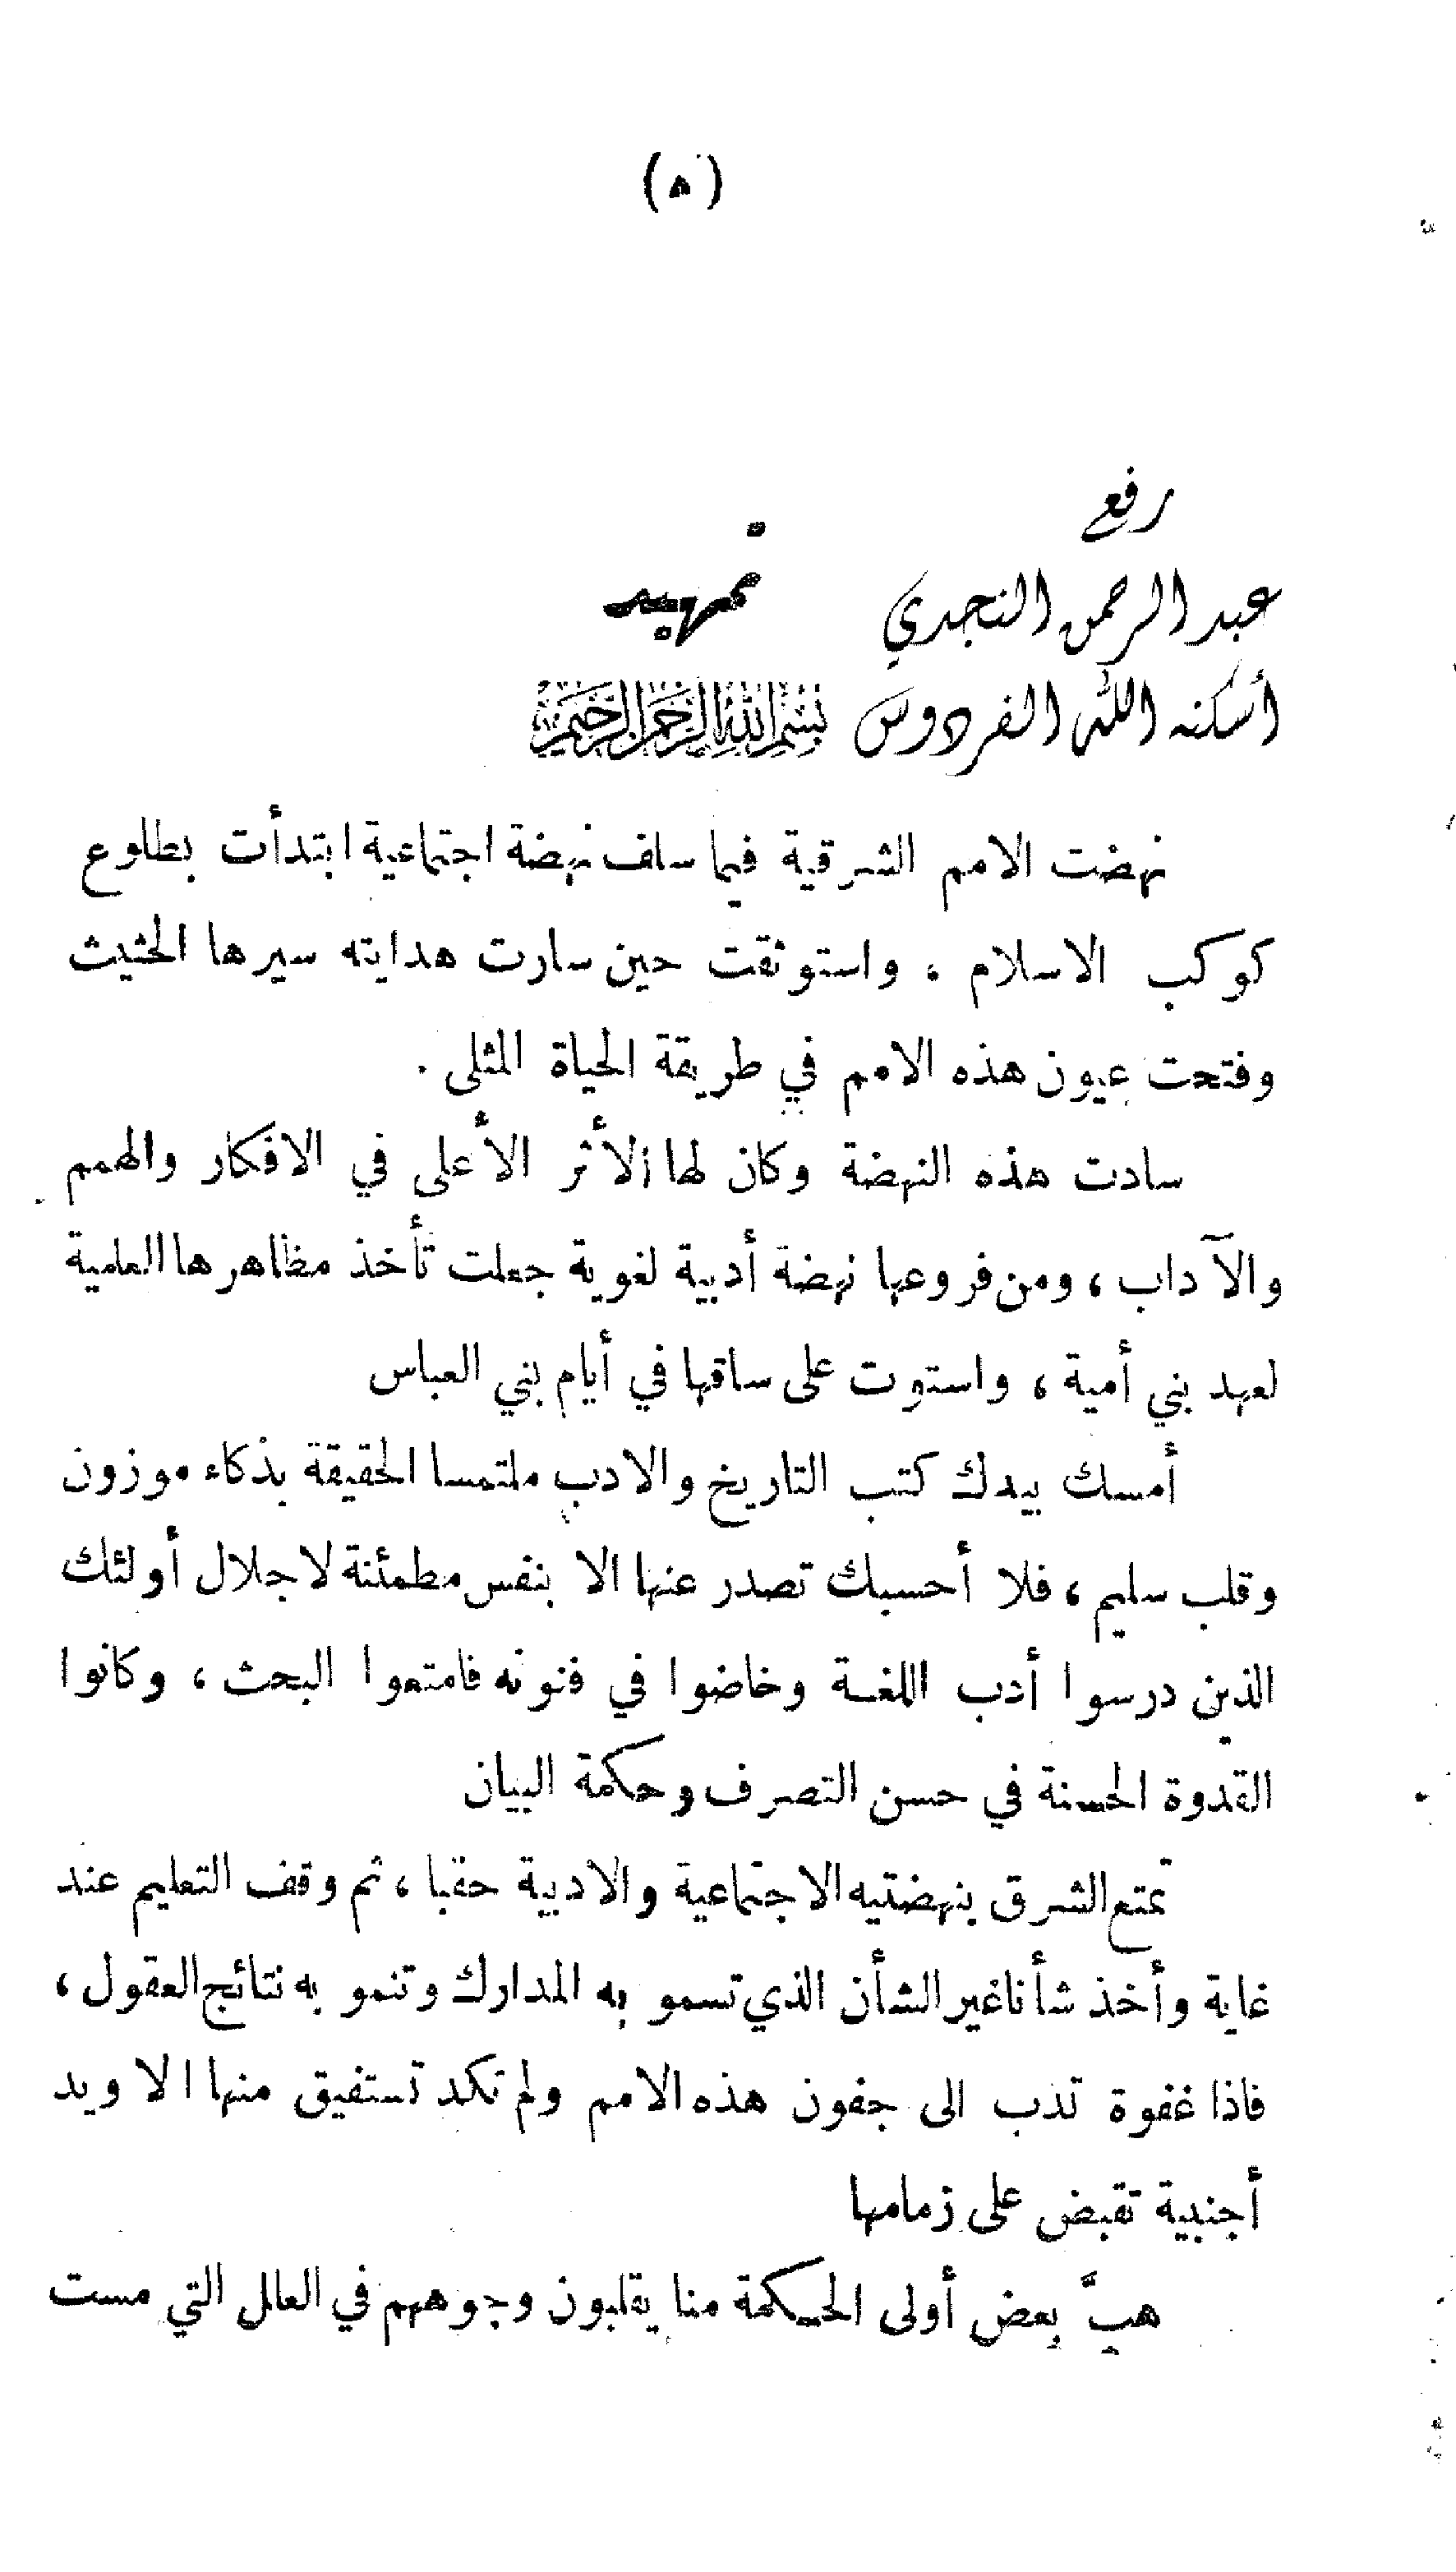 (٥)
رفع
تمهيد
عبد الرحمن النجدي
أسكنه الله الفردوس
بسم الله الرحمن الرحيم
نهضت الامم الشرقية فيما سلف نهضة اجتماعية ابتدأت بطلوع
كوكب الاسلام ، واستوثقت حين سارت هدايته سيرها الحثيث
وفتحت عيون هذه الامم في طريقة الحياة المثلى .
سادت هذه النهضة وكان لها الأثر الأعلى في الافكار والهمم
والآداب ، ومن فروعها نهضة أدبية لغوية جعلت تأخذ مظاهرها العلمية
لعهد بني أمية ، واستوت على ساقها في أيام بني العباس
أمسك بيدك كتب التاريخ والادب ملتمسا الحقيقة بذكاء موزون
وقلب سليم ، فلا أحسبك تصدر عنها الا بنفس مطمئنة لاجلال أولئك
الذين درسوا أدب اللغة وخاضوا في فنونه فامتعوا البحث ، وكانوا
القدوة الحسنة في حسن التصرف وحكمة البيان
تمتع الشرق بنهضتيه الاجتماعية والادبية حقبا ، ثم وقف التعليم عند
غاية وأخذ شأنا غير الشأن الذي تسمو به المدارك وتنمو به نتائج العقول ،
فاذا غفوة تدب الى جفون هذه الامم ولم تكد تستفيق منها الا ويد
أجنبية تقبض على زمامها
هبَّ بعض أولى الحكمة منا يقلبون وجوههم في العلل التي مست